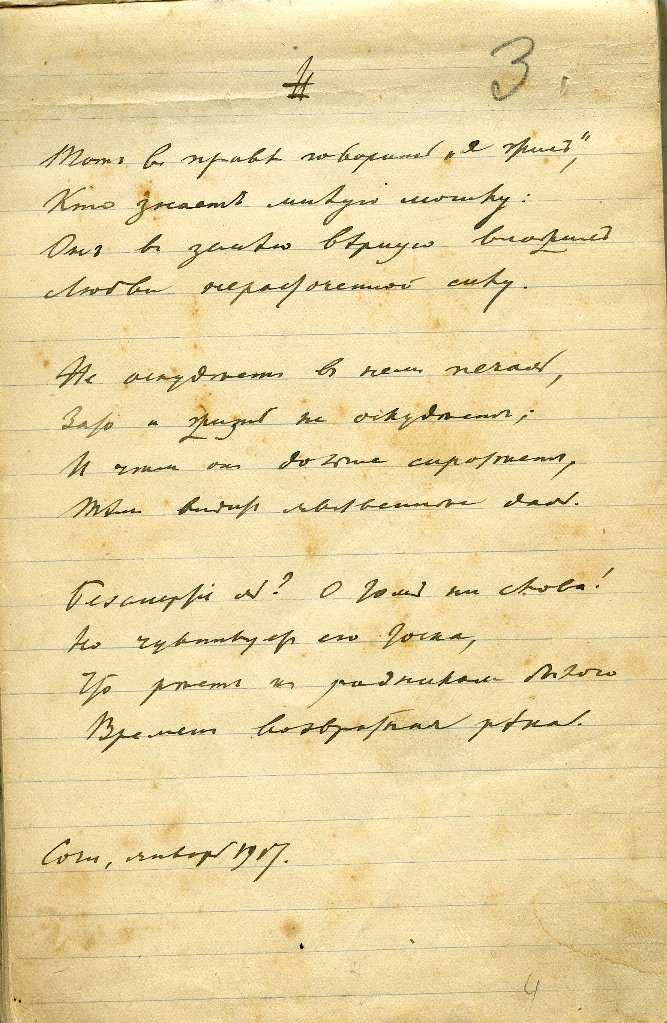 4
3.
Тотъ в правѣ говорить „я жилъ“,
Кто знаетъ милую могилу:
Онъ в землю вѣрную вложилъ
Любви нерасточенной силу.
Не оскудѣетъ в немъ печаль,
Зато и жизнь не оскудѣетъ;
И чѣмъ онъ дольше сиротѣетъ,
Тѣмъ видитъ явственнѣе даль.
Безсмертіе ль? О томъ ни слова!
Но чувствуетъ его тоска,
Что рѣетъ къ родникамъ былого
Временъ возвратная рѣка.
Сочи, январь 1917.
4